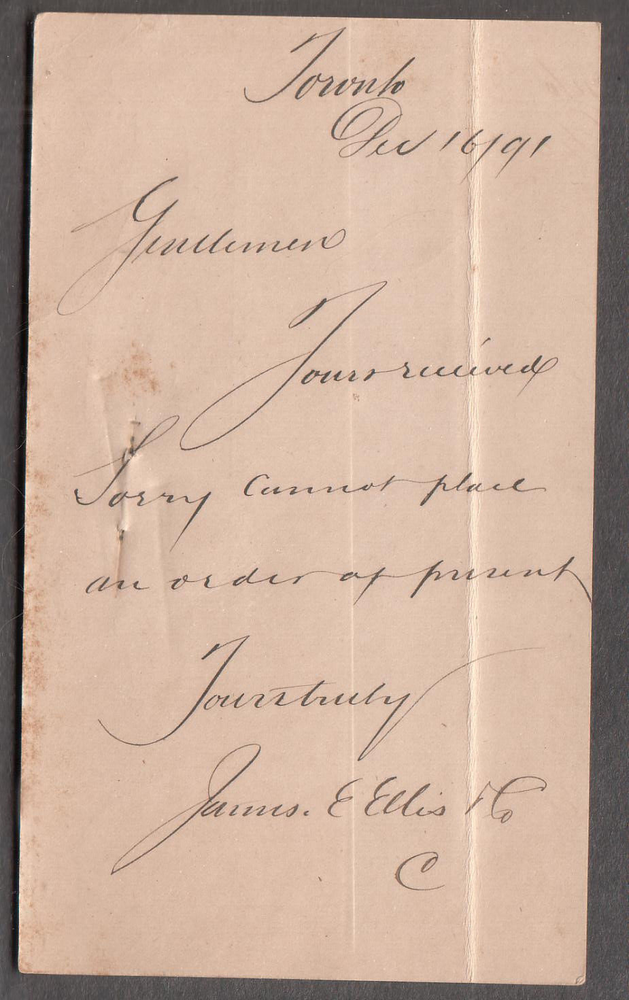 Toronto
Dec 16/91
Gentlemen
Yours received
Sorry cannot place
an order at present
Yours truly
James. E Ellis & Co
C